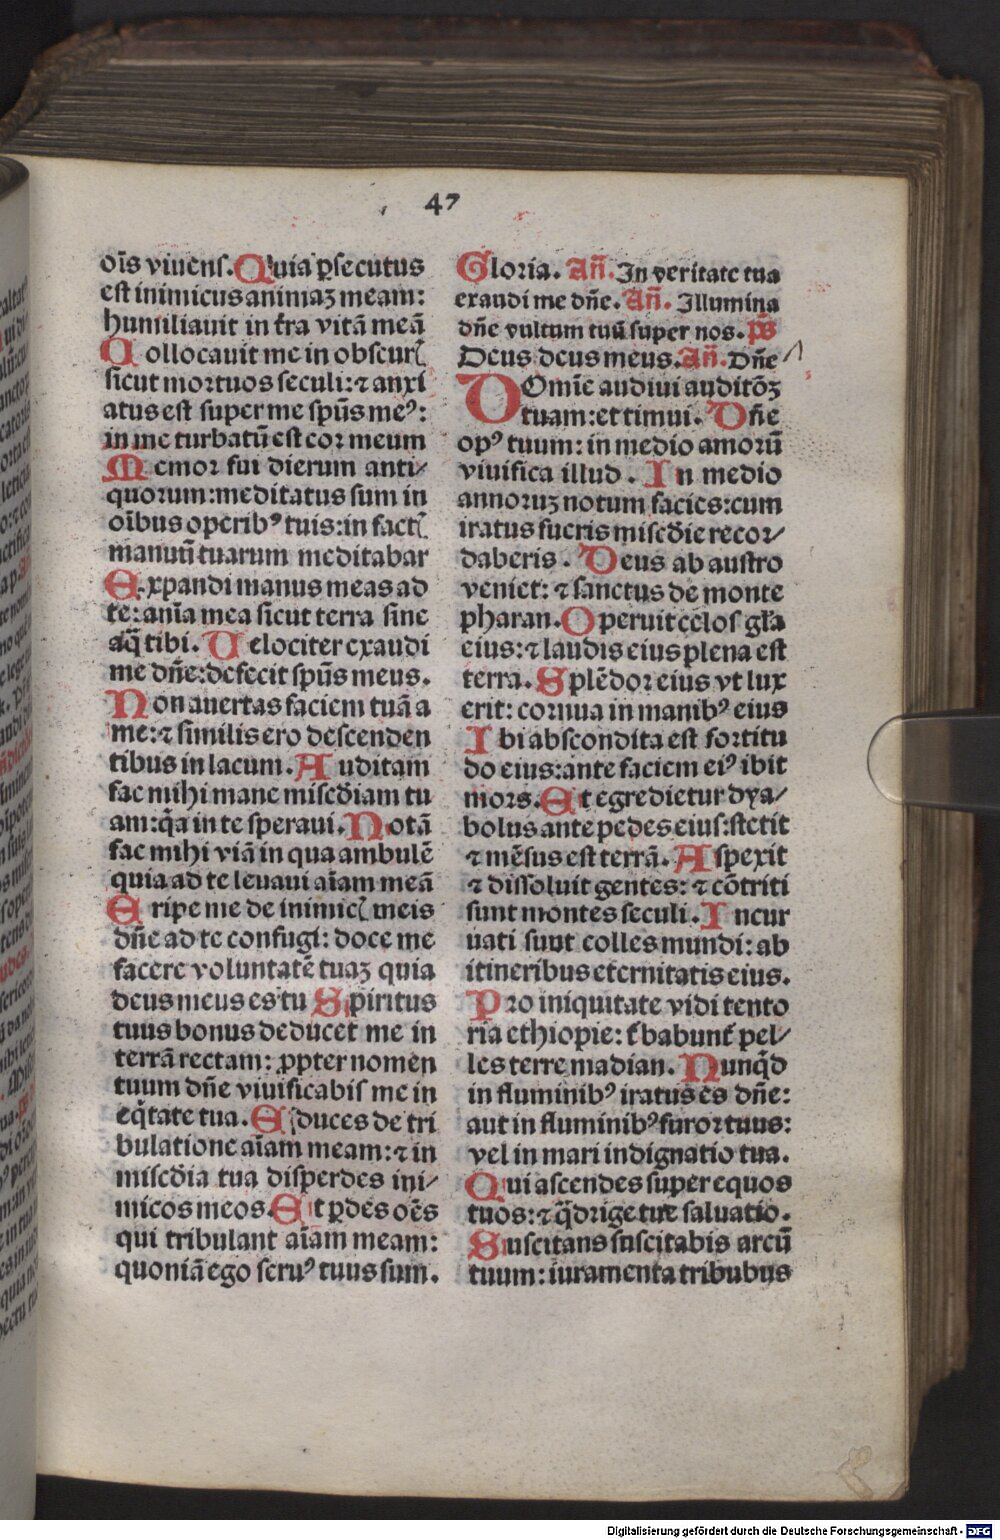 47
oīs viuens. Quia ꝑsecutus
est inimicus animaꝫ meam:
humiliauit in t̄ra vitā meā
Collocauit me in obscurꝭ
sicut mortuos seculi: ⁊ anxi
atus est super me spūs meꝰ:
in me turbatū est cor meum
Memor fui dierum anti⸗
quorum: meditatus sum in
oībus operibꝰ tuis: in factꝭ
manuū tuarum meditabar
Expandi manus meas ad
te: anīa mea sicut terra sine
aq̄ tibi. Velociter exaudi
me dn̄e: defecit spūs meus.
Non auertas faciem tuā a
me: ⁊ similis ero descenden
tibus in lacum. Auditam
fac mihi mane misc̄diam tu
am: q̄a in te speraui. Notā
fac mihi viā in qua ambulē
quia ad te leuaui aīam meā
Eripe me de inimicꝭ meis
dn̄e ad te confugi: doce me
facere voluntatē tuaꝫ quia
deus meus es tu Spiritus
tuus bonus deducet me in
terrā rectam: ꝓpter nomen
tuum dn̄e viuificabis me in
eq̄tate tua. Educes de tri
bulatione aīam meam: ⁊ in
misc̄dia tua disperdes ini⸗
micos meos. Et ꝑdes oēs
qui tribulant aīam meam:
quoniā ego seruꝰ tuus sum.
Gloria. Añ. In veritate tua
exaudi me dn̄e. Añ. Illumina
dn̄e vultum tuū super nos. p̄s
Deus deus meus. Añ. Dn̄e
DOmīe audiui auditōꝫ
tuam: et timui. Dn̄e
opꝰ tuum: in medio amorū
viuifica illud. In medio
annoruꝫ notum facies: cum
iratus fueris misc̄die recor⸗
daberis. Deus ab austro
veniet: ⁊ sanctus de monte
pharan. Operuit celos gl̄a
eius: ⁊ laudis eius plena est
terra. Splēdor eius vt lux
erit: cornua in manibꝰ eius
Ibi abscondita est fortitu
do eius: ante faciem eiꝰ ibit
mors. Et egredietur dya⸗
bolus ante pedes eius: stetit
⁊ mēsus est terrā. Aspexit
⁊ dissoluit gentes: ⁊ cōtriti
sunt montes seculi. Incur
uati suut colles mundi: ab
itineribus eternitatis eius.
Pro iniquitate vidi tento
ria ethiopie: t̄babunt̄ pel⸗
les terre madian. Nunq̄d
in fluminibꝰ iratus es dn̄e:
aut in fluminibꝰ furor tuus:
vel in mari indignatio tua.
Qui ascendes super equos
tuos: ⁊ q̄drige tue saluatio.
Suscitans suscitabis arcū
tuum: iuramenta tribubus
Digitalisierung gefördert durch die Deutsche Forschungsgemeinschaft - DFG